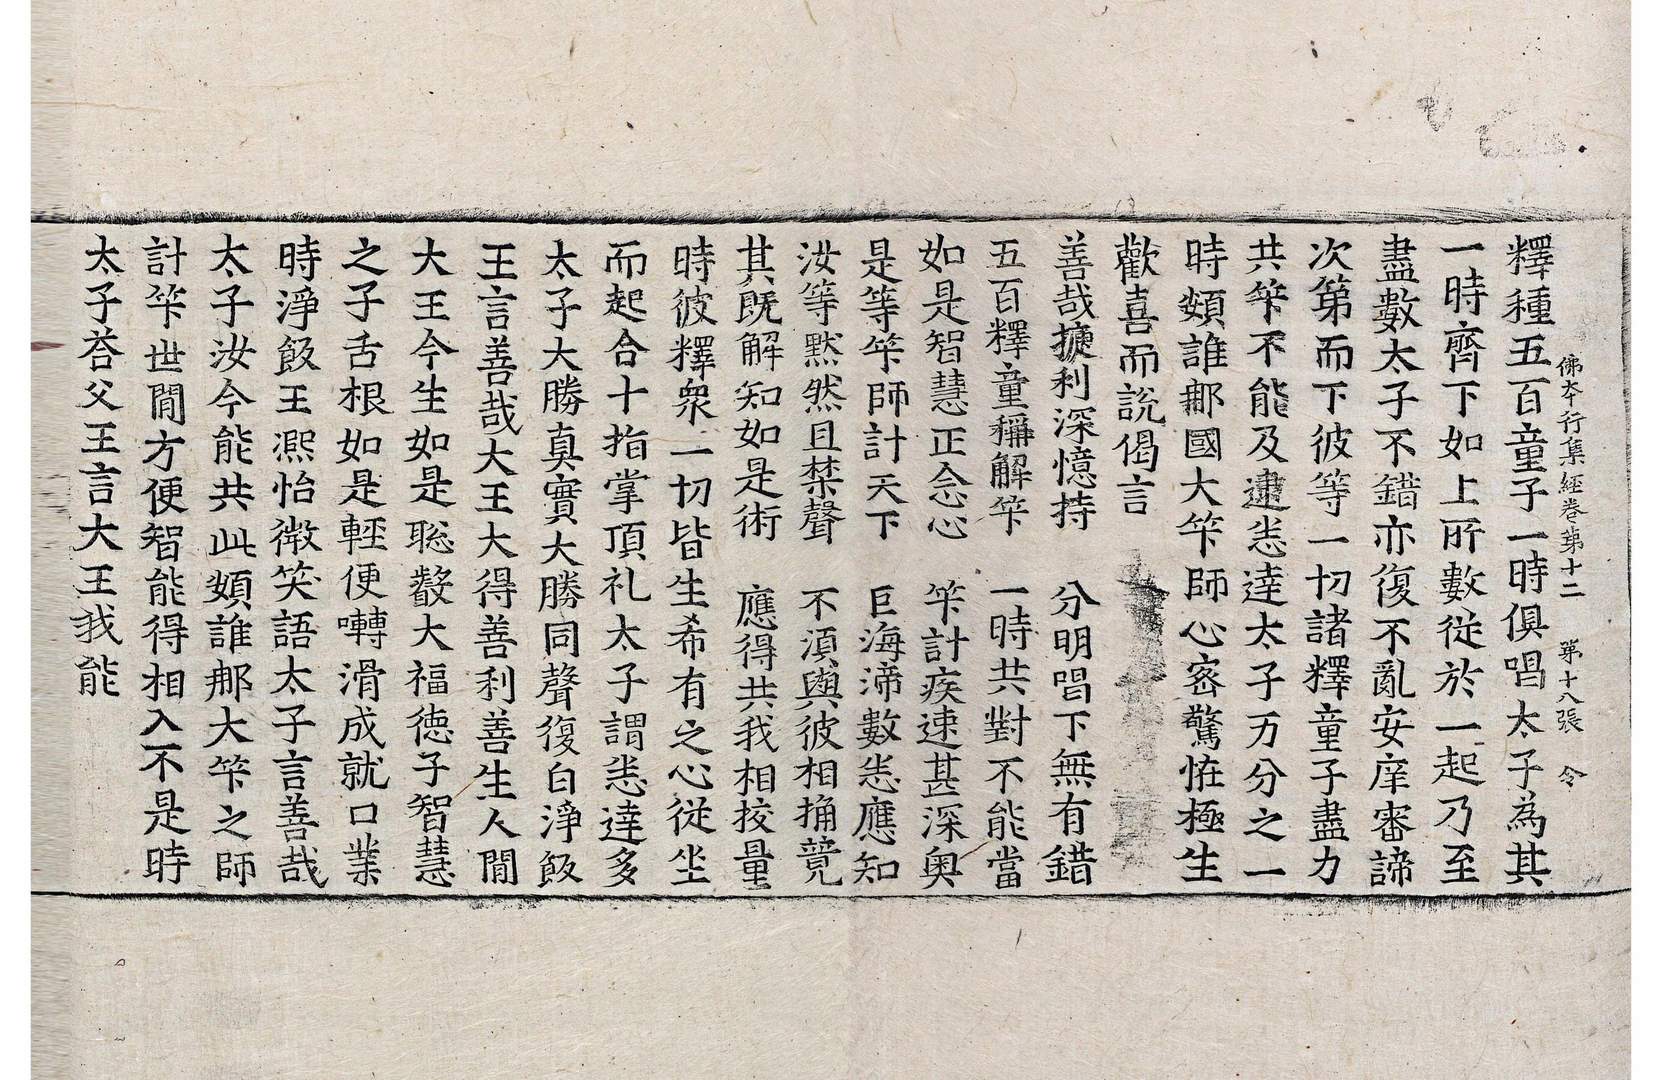 佛本行集經卷第十二　第十八張　令
釋種五百童子一時俱唱太子為其
一時齊下如上所數從於一起乃至
盡數太子不錯亦復不亂安庠審諦
次第而下彼等一切諸釋童子盡力
共笇不能及逮悉達太子万分之一
時頞誰那國大笇師心密驚恠極生
歡喜而說偈言
善哉㨗利深憶持　分明唱下無有錯
五百釋童稱解笇　一時共對不能當
如是智慧正念心　笇計疾速甚深奧
是等笇師計天下　巨海渧數悉應知
汝等默然且禁聲　不須與彼相捔競
其既解知如是術　應得共我相挍量
時彼釋衆一切皆生希有之心從坐
而起合十指掌頂礼太子謂悉達多
太子大勝真實大勝同聲復白淨飯
王言善哉大王大得善利善生人閒
大王今生如是聡叡大福徳子智慧
之子舌根如是輕便囀滑成就口業
時淨飯王熈怡微笑語太子言善哉
太子汝今能共此頞誰那大笇之師
計笇世閒方便智能得相入不是時
太子荅父王言大王我能